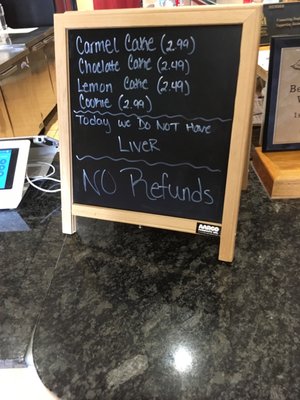 Carmel Cake (2.99)
Choclate Cake (2.49)
Lemon Cake (2.49)
Cookie (2.99)
Today we Do NOT Have
LIVER
NO Refunds
AARCO